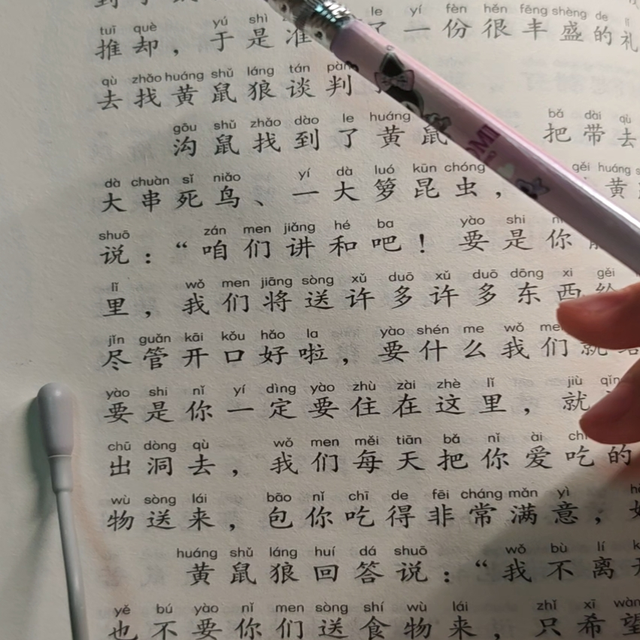 tuī què yú shì le yí fèn hěn fēng shèng de
推却，于是准 了一份很丰盛的礼
qù zhǎo huáng shǔ láng tán pàn
去找黄鼠狼谈判
gōu shǔ zhǎo dào le huáng bǎ dài qù
沟鼠找到了黄鼠 把带去
dà chuàn sǐ niǎo yí dà luó kūn chóng gěi huáng
大串死鸟、一大箩昆虫， 黄
shuō zán men jiǎng hé ba yào shi nǐ
说：“咱们讲和吧！要是你
lǐ wǒ men jiāng sòng xǔ duō xǔ duō dōng xi gěi
里，我们将送许多许多东西给
jǐn guǎn kāi kǒu hǎo la yào shén me wǒ me
尽管开口好啦，要什么我们就
yào shi nǐ yí dìng yào zhù zài zhè lǐ jiù
要是你一定要住在这里，就
chū dòng qù wǒ men měi tiān bǎ nǐ ài
出洞去，我们每天把你爱吃的
wù sòng lái bāo nǐ chī de fēi cháng mǎn yì
物送来，包你吃得非常满意，
huáng shǔ láng huí dá shuō wǒ bù lí
黄鼠狼回答说：“我不离
yě bú yào nǐ men sòng shí wù lái zhǐ xī wàng
也不要你们送食物来，只希望